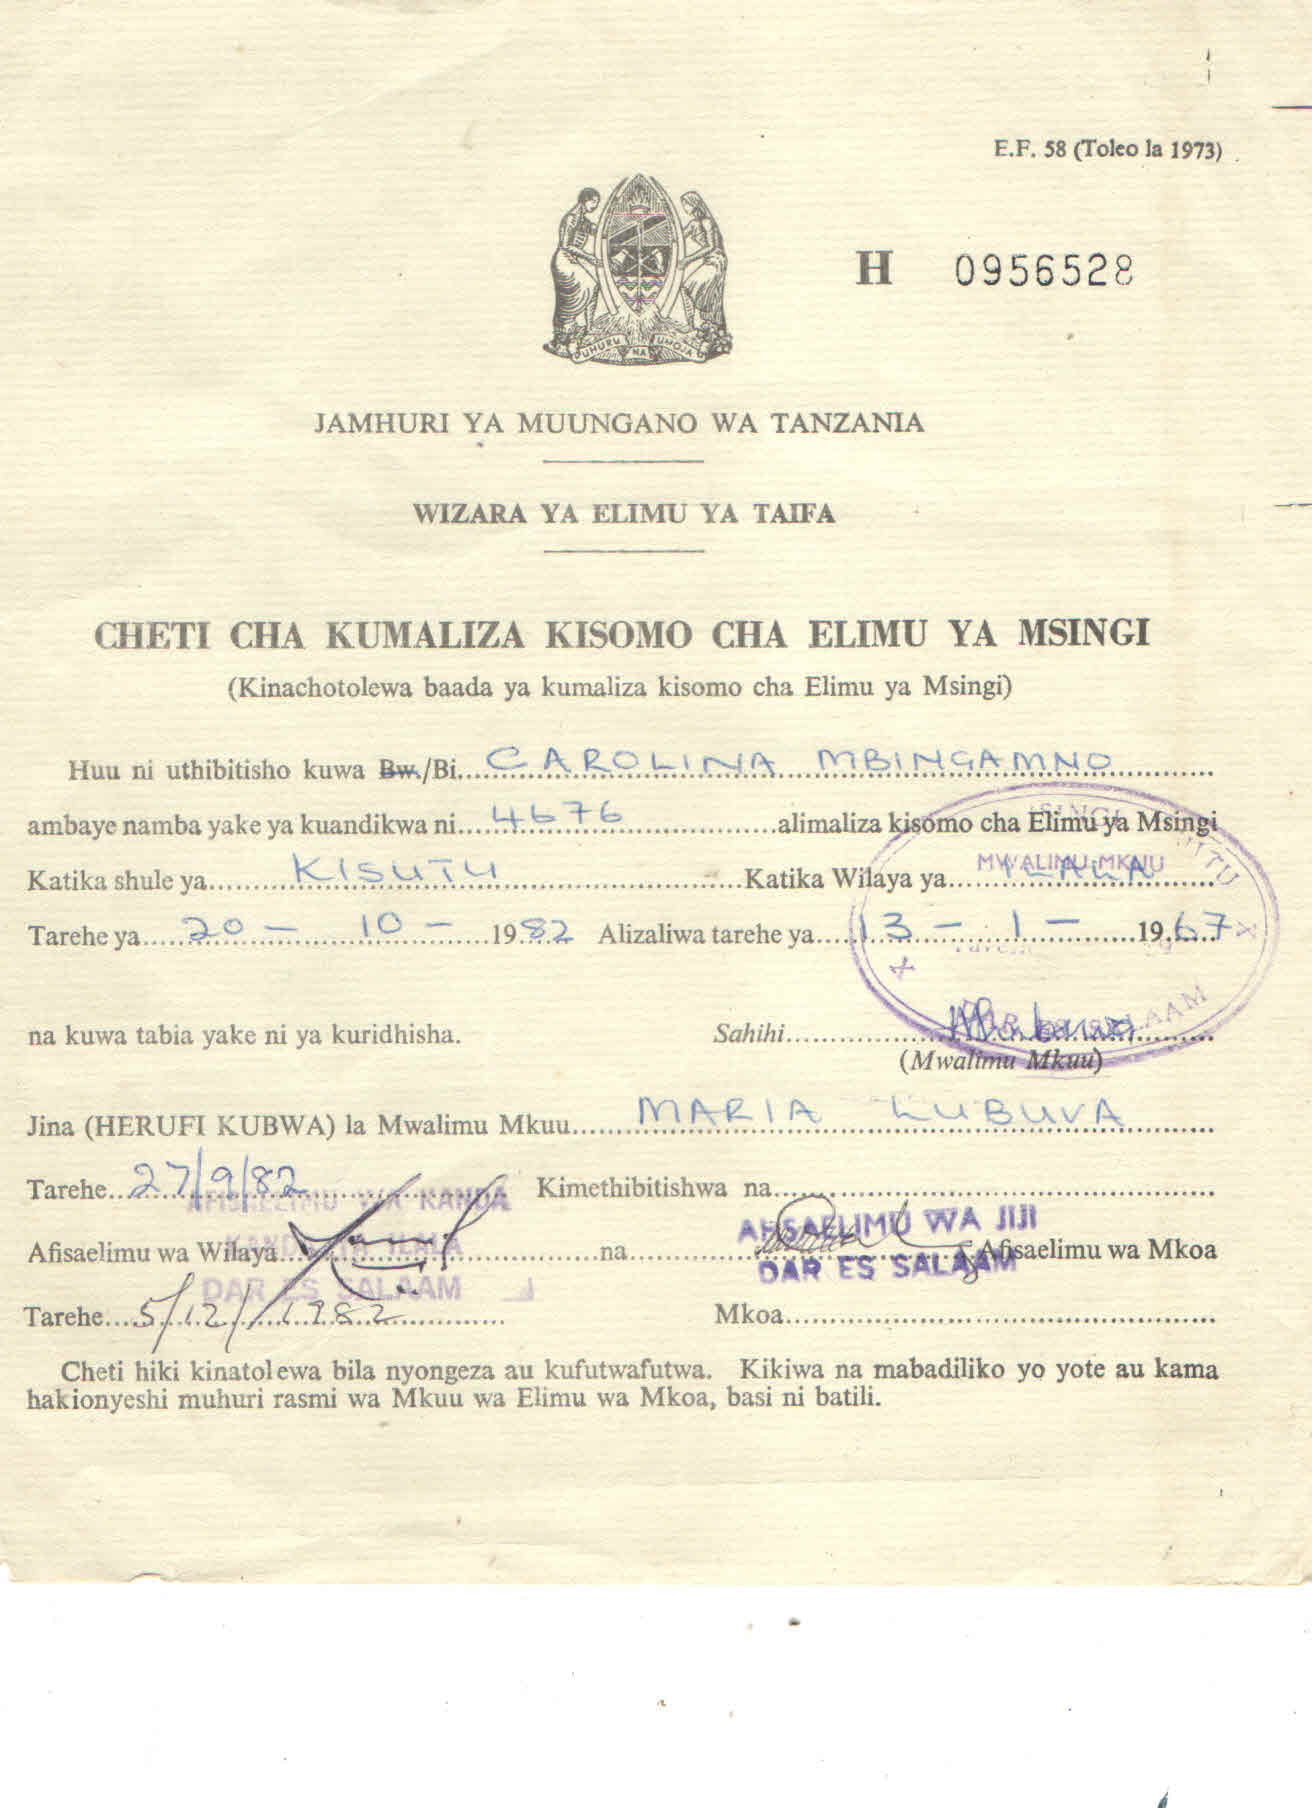 E.F. 58 (Toleo la 1973)
UHURU NA UMOJA
H 0956528
JAMHURI YA MUUNGANO WA TANZANIA
WIZARA YA ELIMU YA TAIFA
CHETI CHA KUMALIZA KISOMO CHA ELIMU YA MSINGI
(Kinachotolewa baada ya kumaliza kisomo cha Elimu ya Msingi)
Huu ni uthibitisho kuwa Bw./Bi. CAROLINA MBINGAMNO
ambaye namba yake ya kuandikwa ni 4676 alimaliza kisomo cha Elimu ya Msingi
Katika shule ya KISUTU Katika Wilaya ya ILALA
MWALIMU MKUU
Tarehe ya 20 - 10 - 1982 Alizaliwa tarehe ya 13 - 1 - 1967
na kuwa tabia yake ni ya kuridhisha. Sahihi
(Mwalimu Mkuu)
Jina (HERUFI KUBWA) la Mwalimu Mkuu MARIA LUBUVA
Tarehe 27/9/82 Kimethibitishwa na
AFISAELIMU WA KANDA
KANDA YA ILALA
DAR ES SALAAM
AFISAELIMU WA JIJI
DAR ES SALAAM
Afisaelimu wa Wilaya na Afisaelimu wa Mkoa
Tarehe 5/12/1982 Mkoa
Cheti hiki kinatolewa bila nyongeza au kufutwafutwa. Kikiwa na mabadiliko yo yote au kama
hakionyeshi muhuri rasmi wa Mkuu wa Elimu wa Mkoa, basi ni batili.